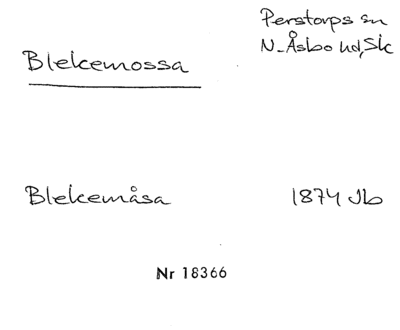 Perstorps sn
N. Åsbo hd, Sk
Blekemossa
Blekemåsa 1874 Jb
Nr 18366